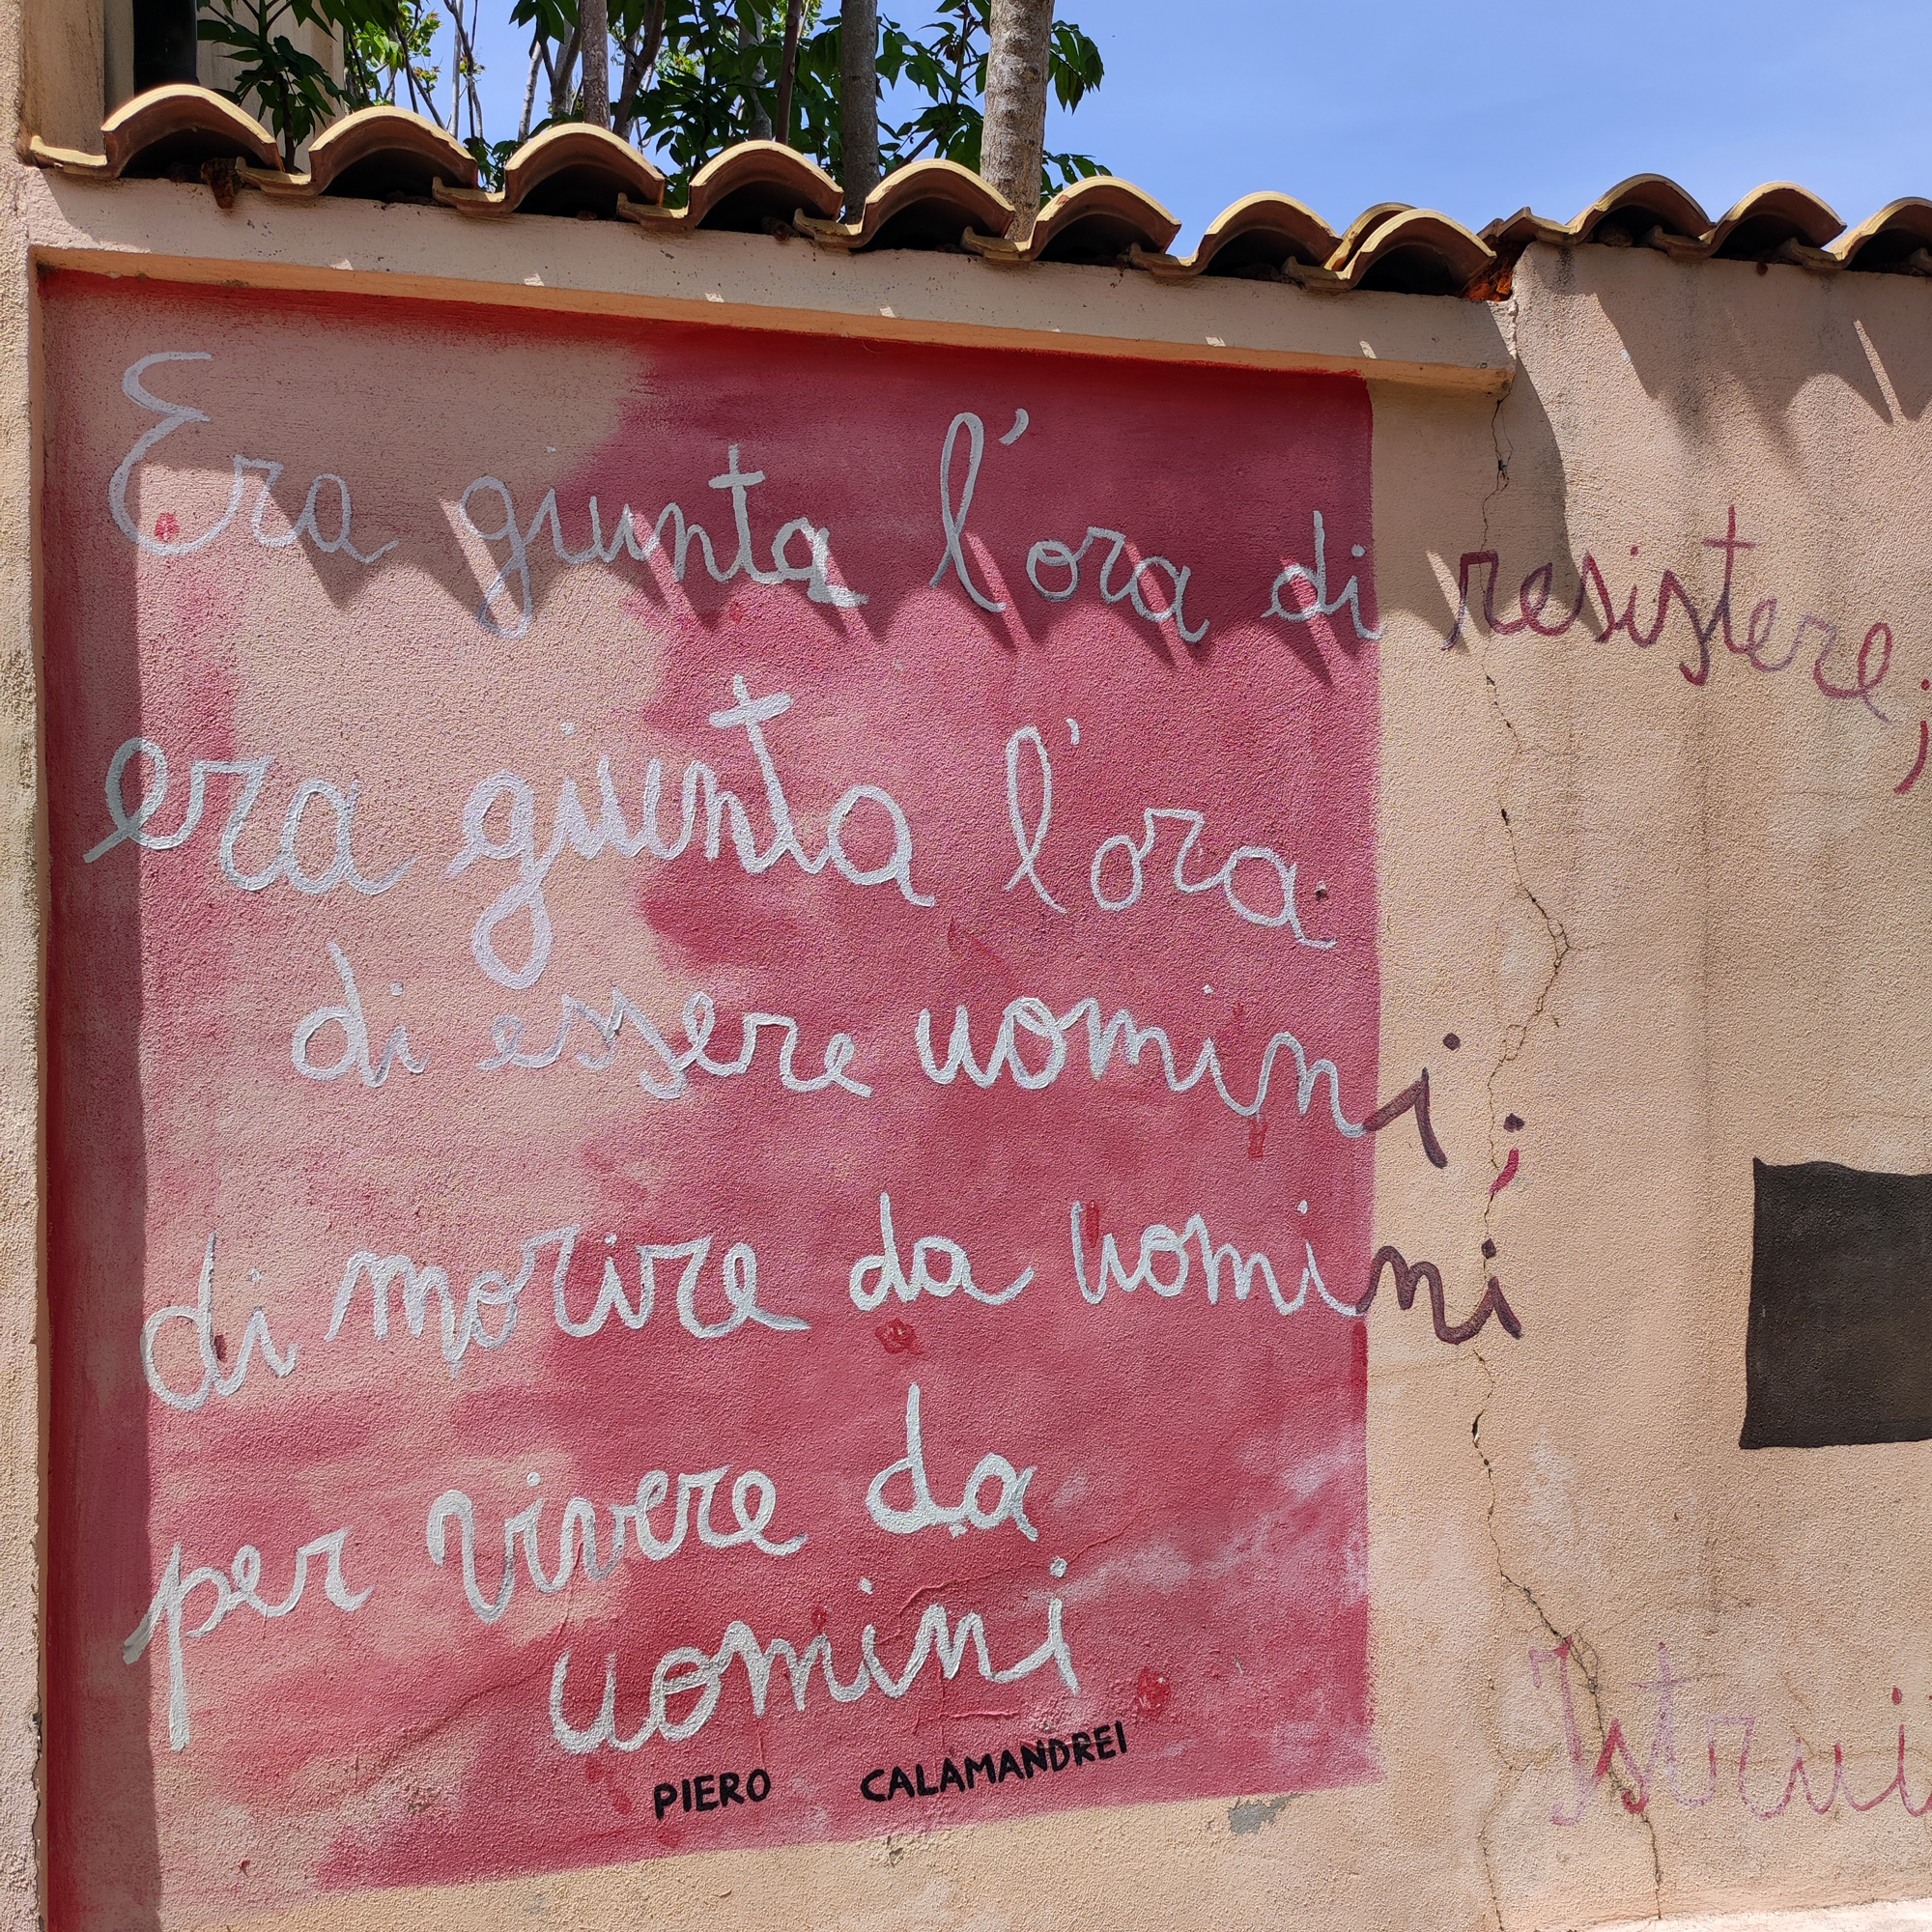 Era giunta l'ora di resistere;
era giunta l'ora
di essere uomini;
di morire da uomini
per vivere da
uomini
PIERO CALAMANDREI
Istrui